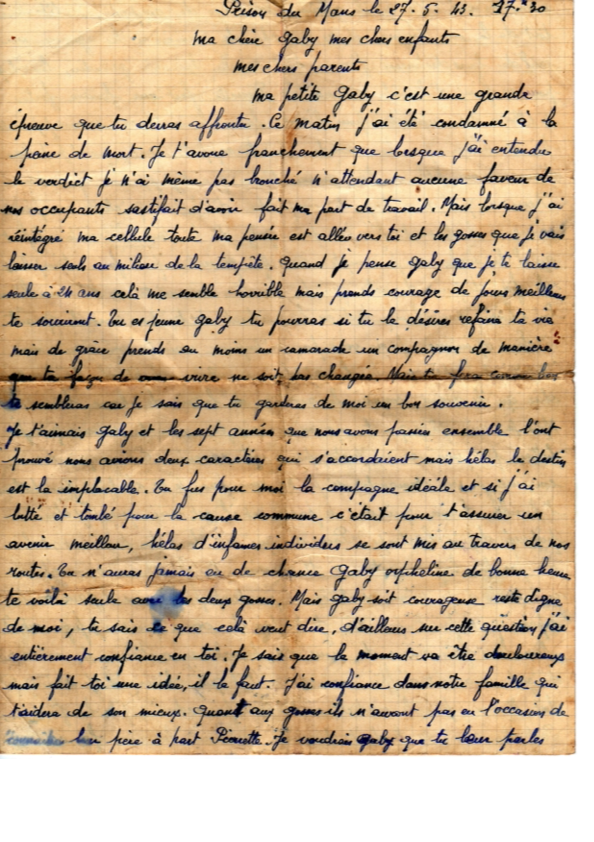 Prison du Mans le 27.5.43. 17h30
ma chère gaby mes chers enfants
mes chers parents
ma petite gaby c'est une grande
épreuve que tu devras affronter. Ce matin j'ai été condamné à la
peine de mort. Je t'avoue franchement que lorsque j'ai entendu
le verdict je n'ai même pas bronché n'attendant aucune faveur de
nos occupants sastifait d'avoir fait ma part de travail. Mais lorsque j'ai
réintégré ma cellule toute ma pensée est allée vers toi et les gosses que je vais
laisser seuls au milieu de la tempête. Quand je pense gaby que je te laisse
seule à 24 ans celà me semble horrible mais prends courage de jours meilleurs
te souriront. Tu es jeune gaby tu pourras si tu le désires refaire ta vie
mais de grâce prends au moins un camarade un compagnon de manière
que ta façon de vivre ne soit pas changée. Mais tu feras comme bon
te sembleras car je sais que tu garderas de moi un bon souvenir.
Je t'aimais gaby et les sept années que nous avons passées ensemble l'ont
prouvé nous avions deux caractères qui s'accordaient mais hélas le destin
est là implacable. Tu fus pour moi la compagne idéale et si j'ai
lutté et tombé pour la cause commune c'était pour t'assurer un
avenir meilleur, hélas d'infames individus se sont mis au travers de nos
routes. Tu n'auras jamais eu de chance gaby orpheline de bonne heure
te voilà seule avec les deux gosses. Mais gaby soit courageuse reste digne
de moi, tu sais ce que celà veut dire, d'ailleurs sur cette question j'ai
entièrement confiance en toi. Je sais que le moment va être douloureux
mais fait toi une idée, il le faut. J'ai confiance dans notre famille qui
t'aidera de son mieux. Quant aux gosses ils n'auront pas eu l'occasion de
leur père à part Pierrette. Je voudrais gaby que tu leur parles